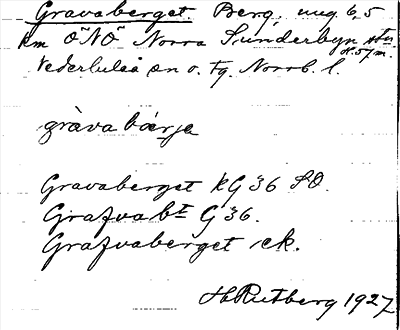 Gravaberget. Berg, ung 6,5
km ÖNÖ Norra Sunderbyn stn
H. 57 m.
Nederluleå sn o. tg. Norrb. l.
gràvabárja
Gravaberget kG 36 SO.
Grafva bt G 36.
Grafvaberget ek.
H Rutberg 1927